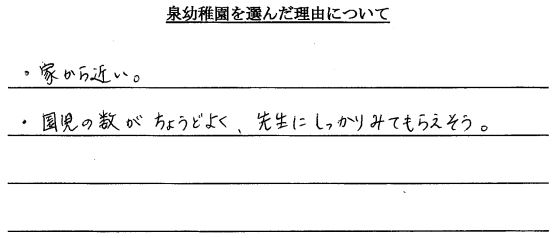 泉幼稚園を選んだ理由について
・家から近い。
・園児の数がちょうどよく、先生にしっかりみてもらえそう。